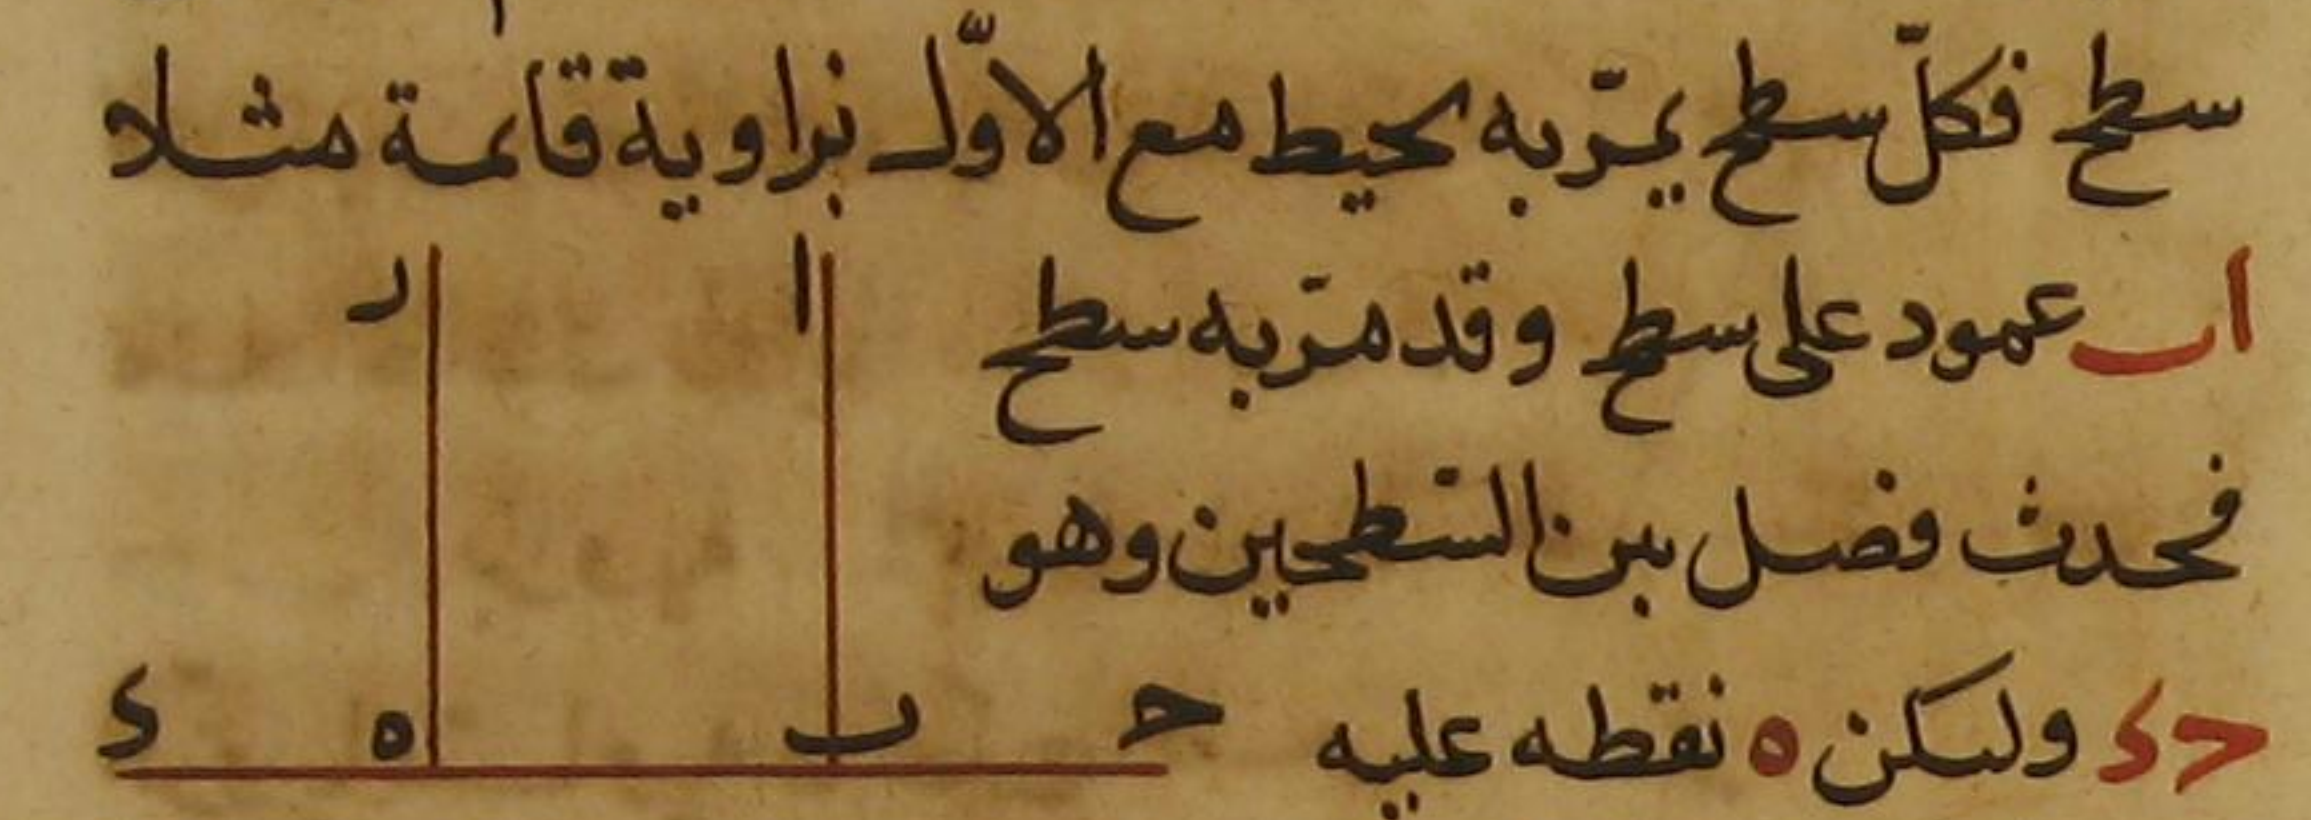 سطح فكلّ سطح يمرّ به يحيط مع الاوّل بزاوية قائمة مثلا
اب عمود على سطح وقد مرّ به سطح
فحدث فصل بين السّطحين وهو
حد وليكن ه نقطه عليه
ا ر
ح ب ه د